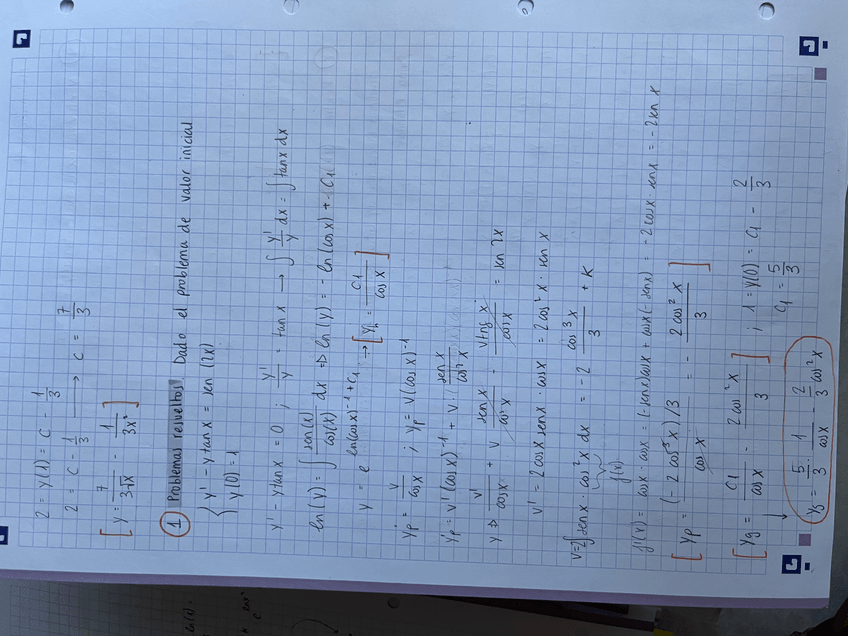 2 = y(1) = C - 1/3
2 = C - 1/3 ⟶ C = 7/3
[ y = 7/(3√x) - 1/(3x²) ]
1 Problemas resueltos. Dado el problema de valor inicial
{ y' - y tan x = sen (2x)
y(0) = 1
y' - y tan x = 0 ; y'/y = tan x → ∫ y'/y dx = ∫ tan x dx
ln(y) = ∫ sen(x)/cos(x) dx ⇒ ln(y) = - ln(cos x) + C1
y = e^(ln(cos x)^-1 + C1) → [ yh = C1/cos x ]
yp = v/cos x ; yp = v(cos x)^-1
y'p = v'(cos x)^-1 + v · sen x/cos² x
v'/cos x + v sen x/cos² x - v tng x/cos x = sen 2x
v' = 2 cos x sen x · cos x = 2 cos² x · sen x
v = 2∫ sen x · cos² x dx = -2 cos³ x/3 + K
f(x)
f'(x) = cos x · cos x = (-sen x) cos x + cos x (-sen x) = -2 cos x · sen x = -2 sen x
[ yp = (-2 cos³ x)/3 / cos x = - 2 cos² x/3 ]
[ yg = C1/cos x - 2 cos² x/3 ] ; 1 = y(0) = C1 - 2/3
C1 = 5/3
ys = 5/3 · 1/cos x - 2/3 cos² x